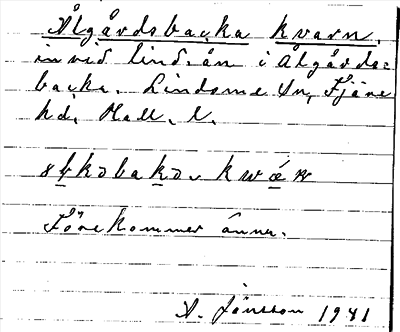 Ålgårdsbacka kvarn,
invid lind-ån i Ålgårds=
backa. Lindome sn, Fjäre
hd, Hall. l.
kwæɴ
Förekommer ännu.
A. Jönsson 1941